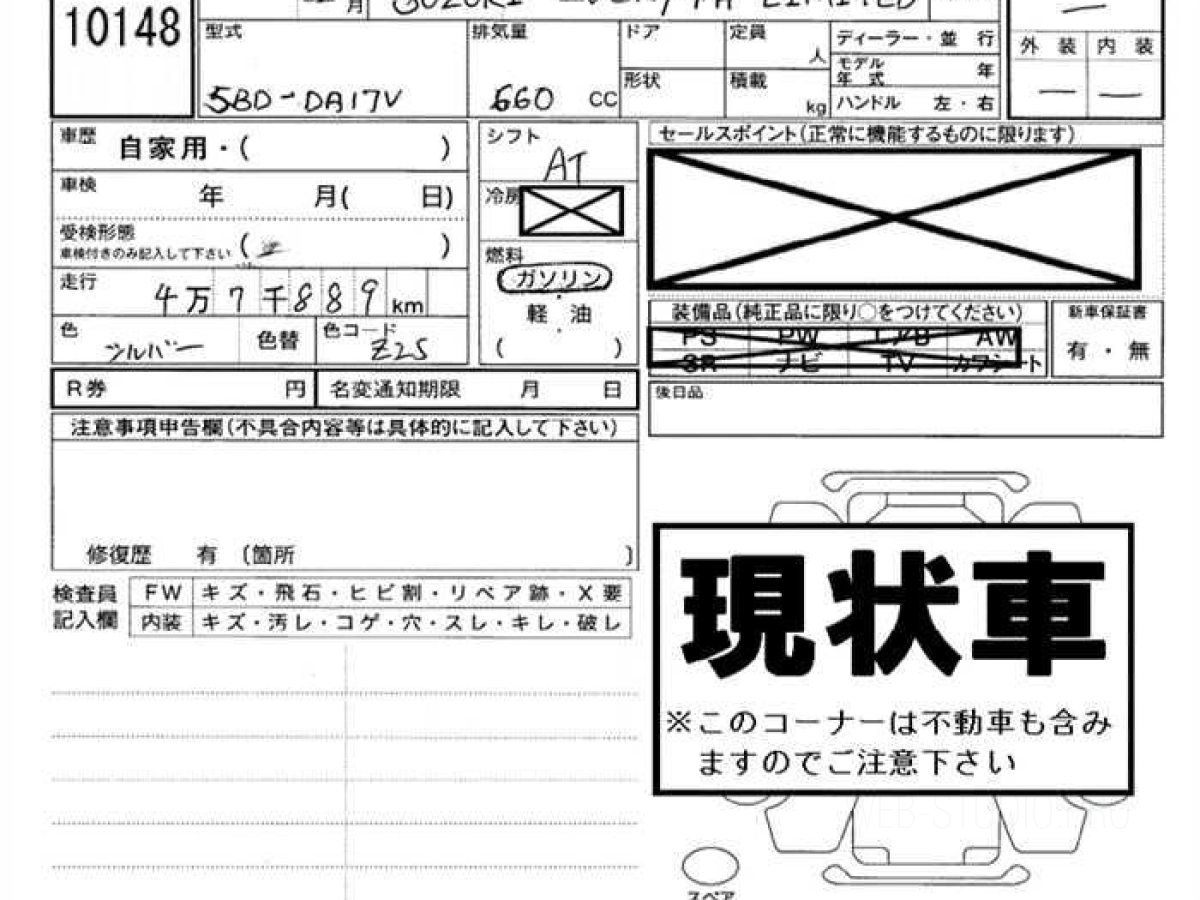 10148
月
SUZUKI EVERY PA LIMITED
型式
5BD-DA17V
排気量
660 CC
ドア
形状
定員
人
積載
kg
ディーラー・並 行
モデル
年 式 年
ハンドル 左・右
外 装 内 装
車歴
自家用・( )
車検
年 月( 日)
受検形態
車検付きのみ記入して下さい ( )
走行
4万7千889 km
色
シルバー
色替
色コード
Z2S
シフト
AT
冷房
燃料
ガソリン
軽・油
( )
セールスポイント(正常に機能するものに限ります)
装備品(純正品に限り○をつけてください)
PS PW エアB AW
SR ナビ TV カワシート
新車保証書
有・無
R券 円
名変通知期限 月 日
後日品
注意事項申告欄(不具合内容等は具体的に記入して下さい)
修復歴 有 〔箇所 〕
検査員
記入欄
FW キズ・飛石・ヒビ割・リペア跡・X要
内装 キズ・汚レ・コゲ・穴・スレ・キレ・破レ
現状車
※このコーナーは不動車も含み
ますのでご注意下さい
スペア